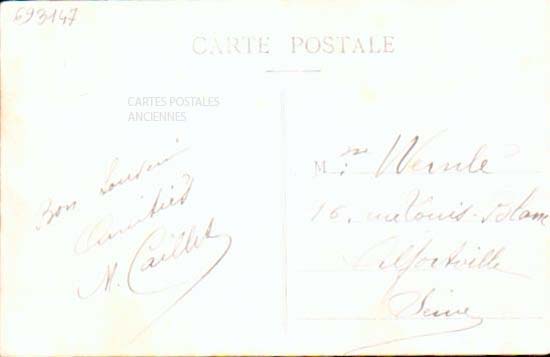 693147
CARTE POSTALE
CARTES POSTALES
ANCIENNES
Bon Souvenir
Amitiés
M. Caillet
Mme Wernlé
16, rue Louis-Blanc
Alfortville
Seine